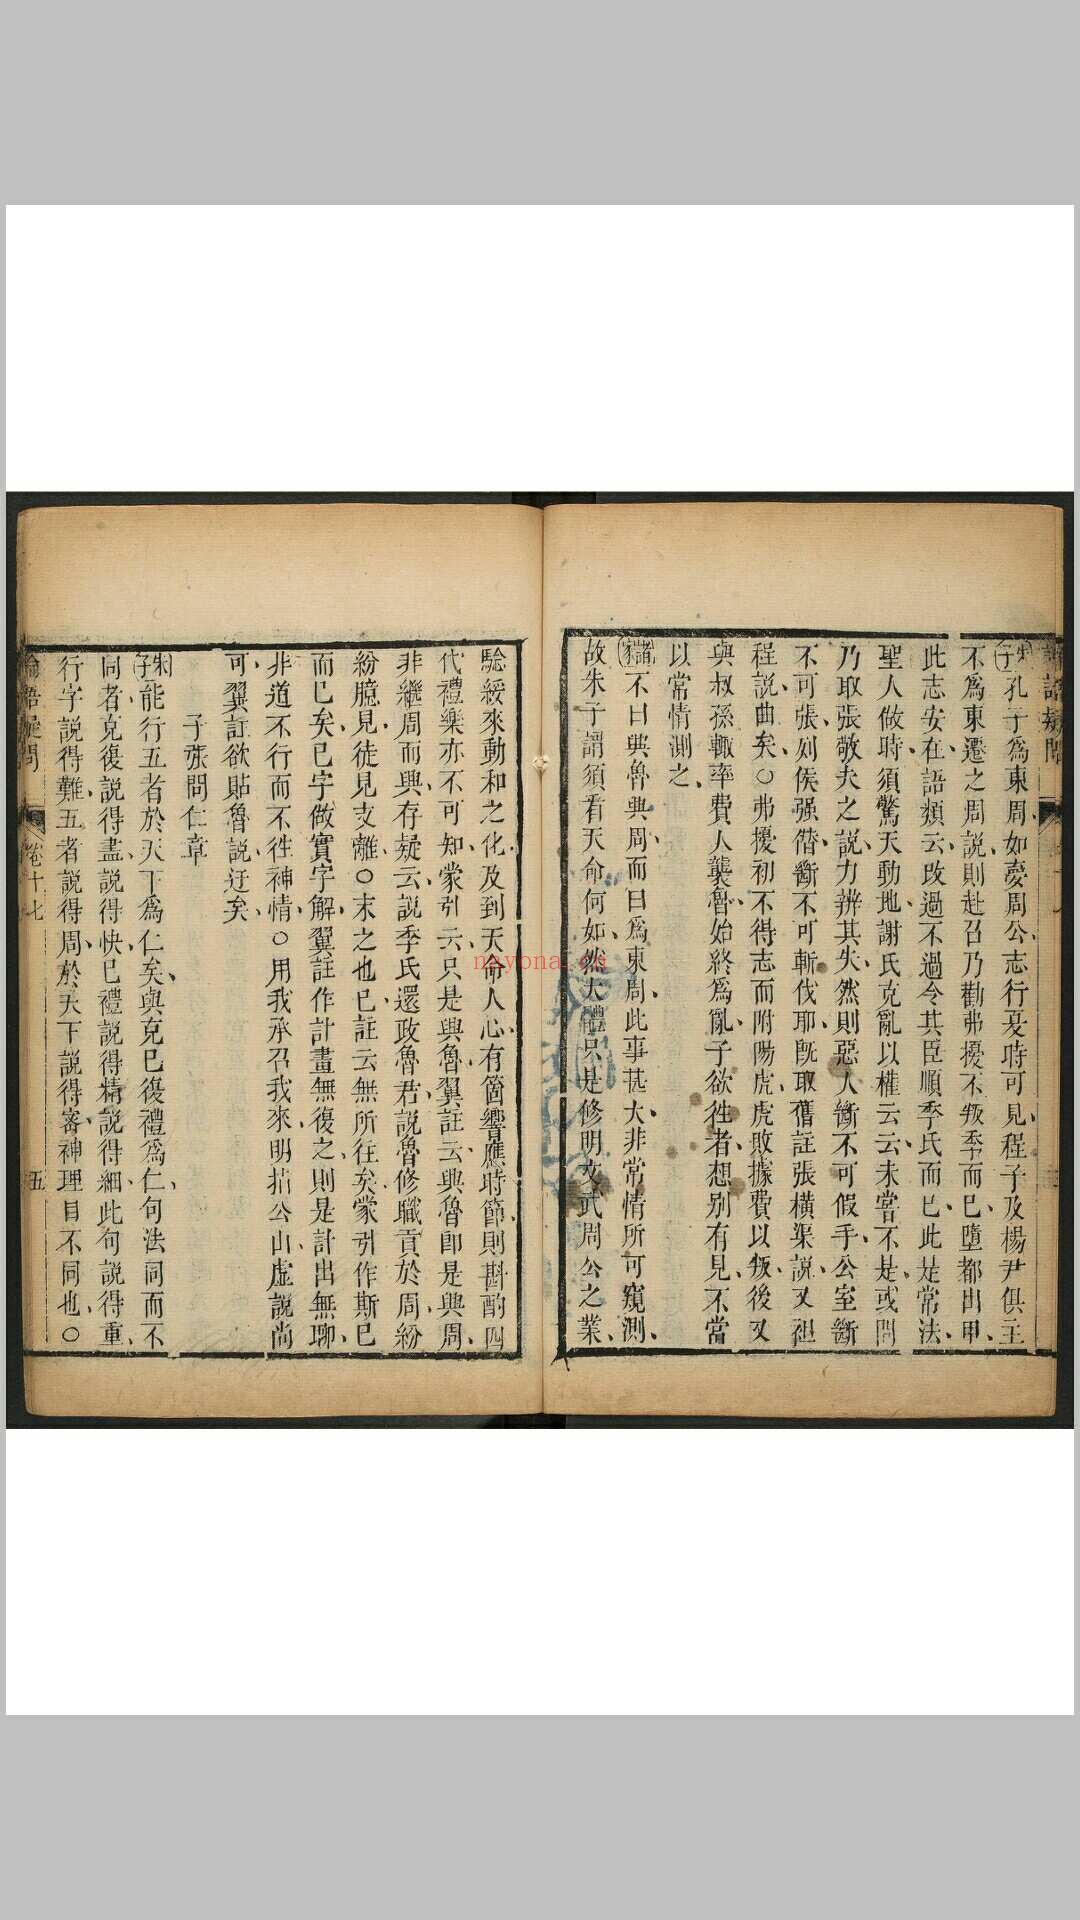 朱子孔子爲東周如夢周公志行憂時可見程子及楊尹俱主
不爲東遷之周說則赴召乃勸弗擾不叛季而已墮都出甲
此志安在語類云改過不過令其臣順季氏而已此是常法
聖人做時須驚天動地謝氏克亂以權云云未嘗不是或問
乃取張敬夫之說力辨其失然則惡人斷不可假手公室斷
不可張列侯强僭斷不可斬伐耶旣取舊註張橫渠說又袒
程說曲矣○弗擾初不得志而附陽虎虎敗據費以叛後又
與叔孫輒率費人襲魯始終爲亂子欲徃者想别有見不當
以常情測之
諸家不曰興魯興周而曰爲東周此事甚大非常情所可窺測
故朱子謂須看天命何如然大體只是修明文武周公之業
驗綏來動和之化及到天命人心有箇響應時節則斟酌四
代禮樂亦不可知蒙引云只是興魯翼註云興魯卽是興周
非繼周而興存疑云說季氏還政魯君說魯修職貢於周紛
紛臆見徒見支離○末之也已註云無所往矣蒙引作斯已
而已矣已字做實字解翼註作計畫無復之則是計出無聊
非道不行而不徃神情○用我承召我來明指公山虛說尚
可翼註欲貼魯說迂矣
子張問仁章
朱子能行五者於天下爲仁矣與克已復禮爲仁句法同而不
同者克復說得盡說得快已禮說得精說得細此句說得重
行字說得難五者說得周於天下說得審神理自不同也○
論語疑問
卷十七
五
nayona.cn